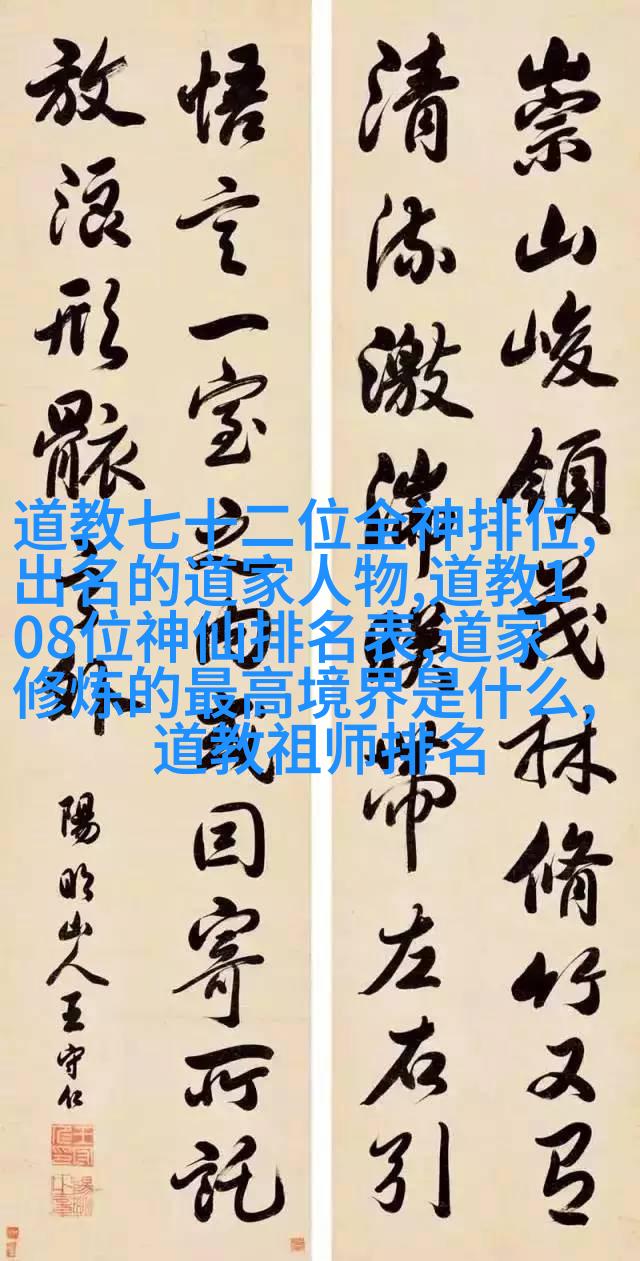 崇山峻領茂林脩竹又有
清流激湍暎帶左右引
悟言一室之内或因寄所託
放浪形骸之外
陽明山人王守仁
道教七十二位全神排位,
出名的道家人物,道教1
08位神仙排名表,道家
修炼的最高境界是什么,
道教祖师排名